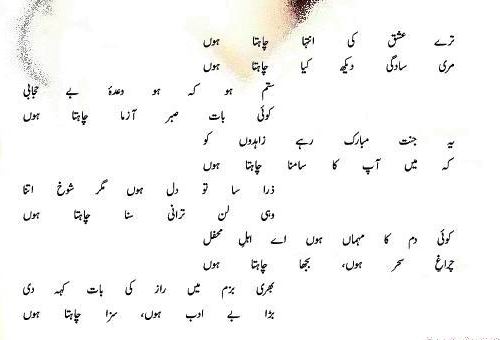 ترے عشق کی انتہا چاہتا ہوں
مری سادگی دیکھ کیا چاہتا ہوں
ستم ہو کہ ہو وعدۂ بے حجابی
کوئی بات صبر آزما چاہتا ہوں
یہ جنت مبارک رہے زاہدوں کو
کہ میں آپ کا سامنا چاہتا ہوں
ذرا سا تو دل ہوں مگر شوخ اتنا
وہی لن ترانی سنا چاہتا ہوں
کوئی دم کا مہماں ہوں اے اہلِ محفل
چراغِ سحر ہوں، بجھا چاہتا ہوں
بھری بزم میں راز کی بات کہہ دی
بڑا بے ادب ہوں، سزا چاہتا ہوں